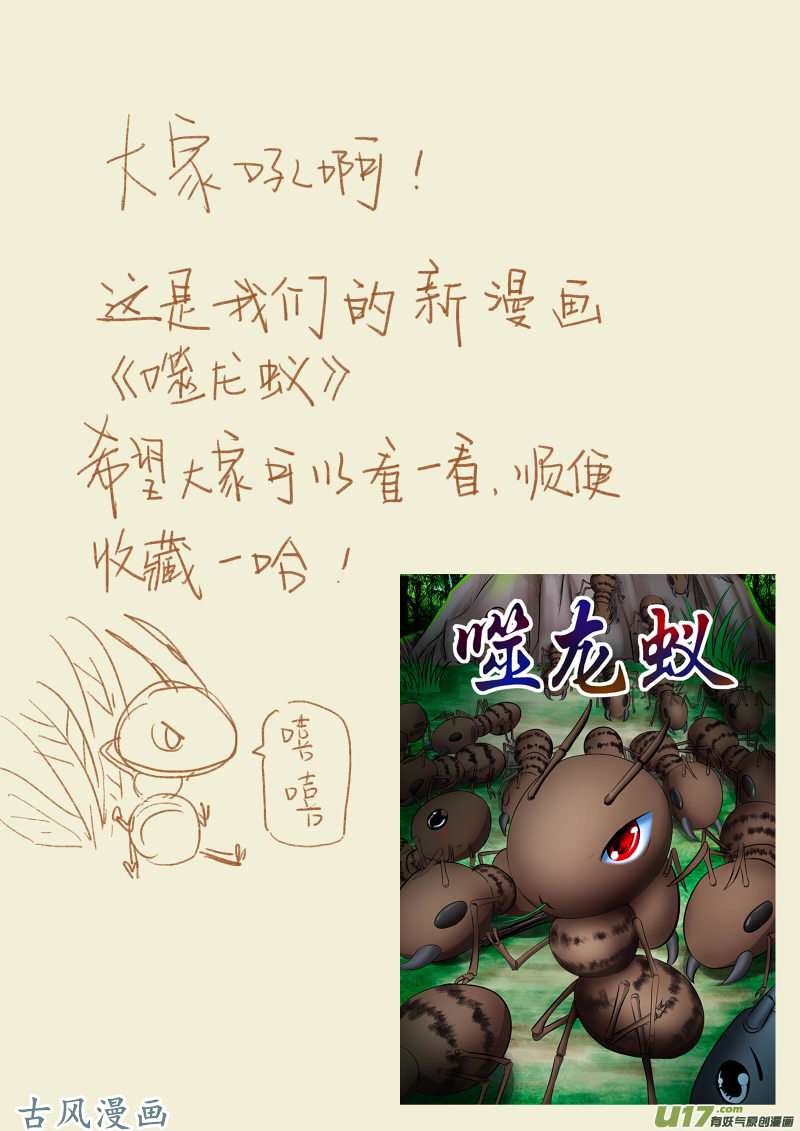 大家吼啊！
这是我们的新漫画
《噬龙蚁》
希望大家可以看一看，顺便
收藏一哈！
嘻
嘻
噬龙蚁
古风漫画
U17.com
有妖气原创漫画